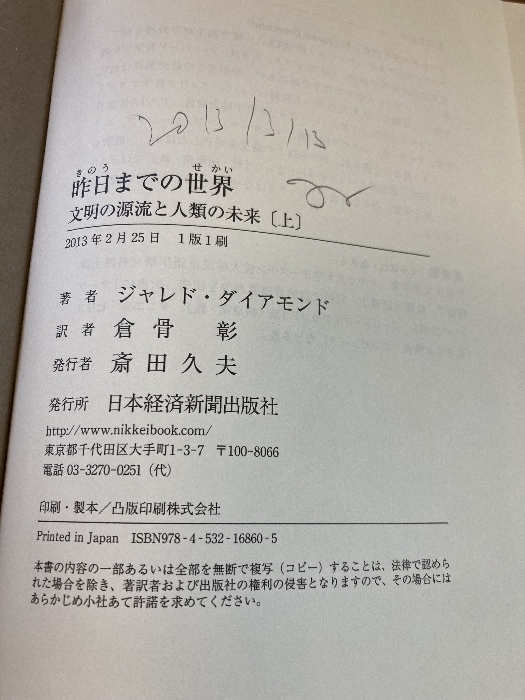 2013/3/13
昨日までの世界
文明の源流と人類の未来〔上〕
2013年2月25日　1版1刷
著者　ジャレド・ダイアモンド
訳者　倉骨　彰
発行者　斎田久夫
発行所　日本経済新聞出版社
http://www.nikkeibook.com/
東京都千代田区大手町1-3-7　〒100-8066
電話 03-3270-0251（代）
印刷・製本／凸版印刷株式会社
Printed in Japan　ISBN978-4-532-16860-5
本書の内容の一部あるいは全部を無断で複写（コピー）することは、法律で認めら
れた場合を除き、著訳者および出版社の権利の侵害となりますので、その場合には
あらかじめ小社あて許諾を求めてください。